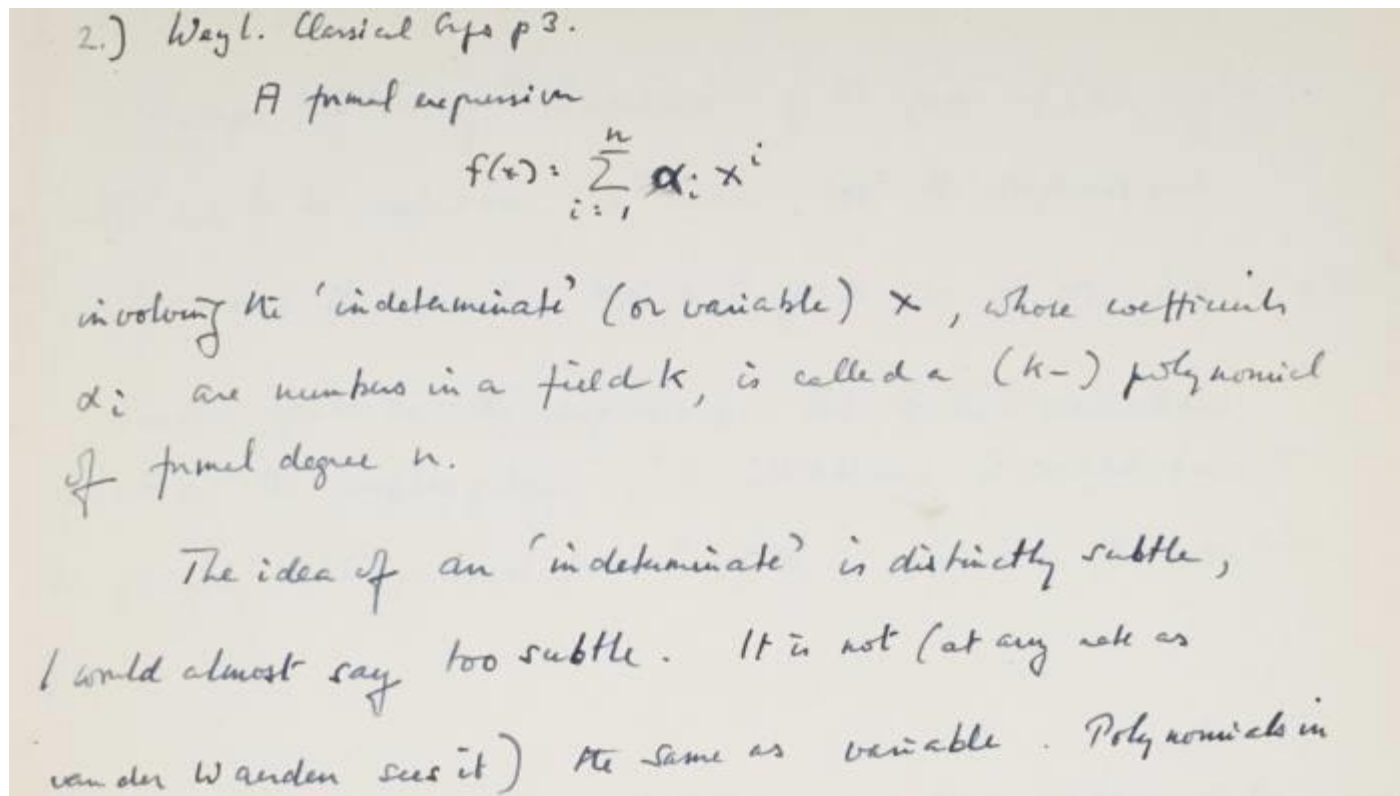 2.) Weyl. Classical Gps p 3.
A formal expression
f(x) = \sum_{i=1}^{n} α_i x^i
involving the 'indeterminate' (or variable) x, whose coefficients
α_i are numbers in a field k, is called a (k-) polynomial
of formal degree n.
The idea of an 'indeterminate' is distinctly subtle,
I would almost say too subtle. It is not (at any rate as
van der Waerden sees it) the same as variable. Polynomials in